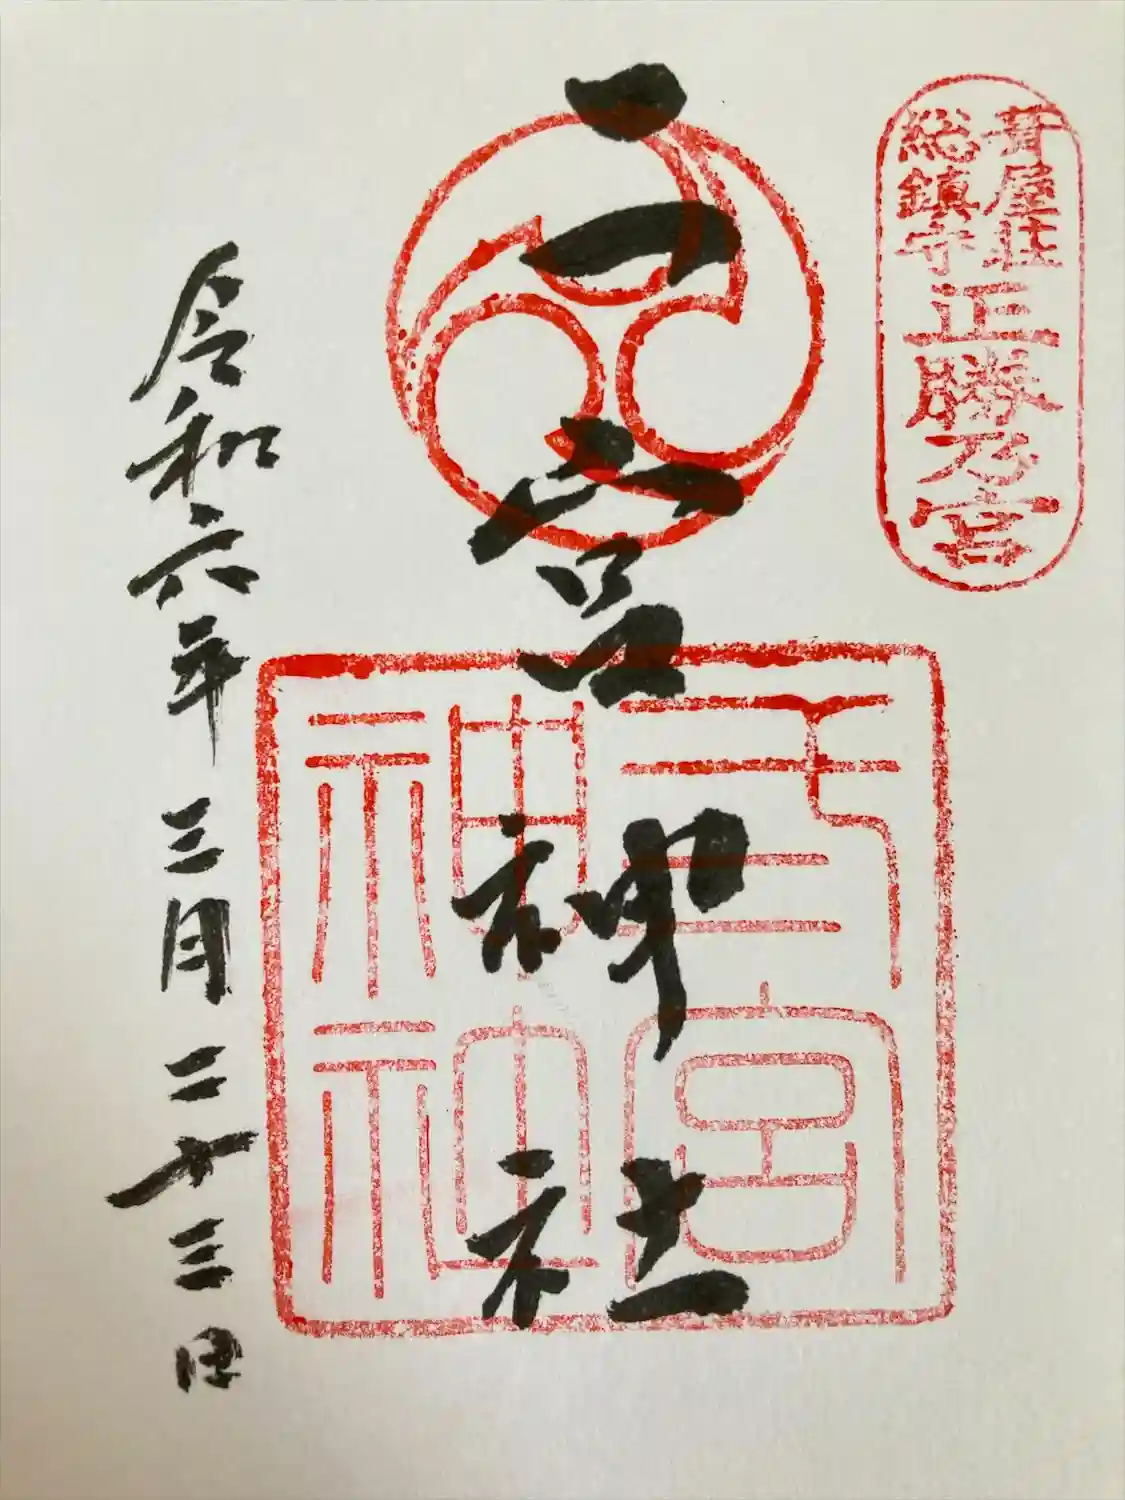 葺屋荘
総鎮守
正勝乃宮
二宮神社
弍宮
神社
令和六年三月二十三日